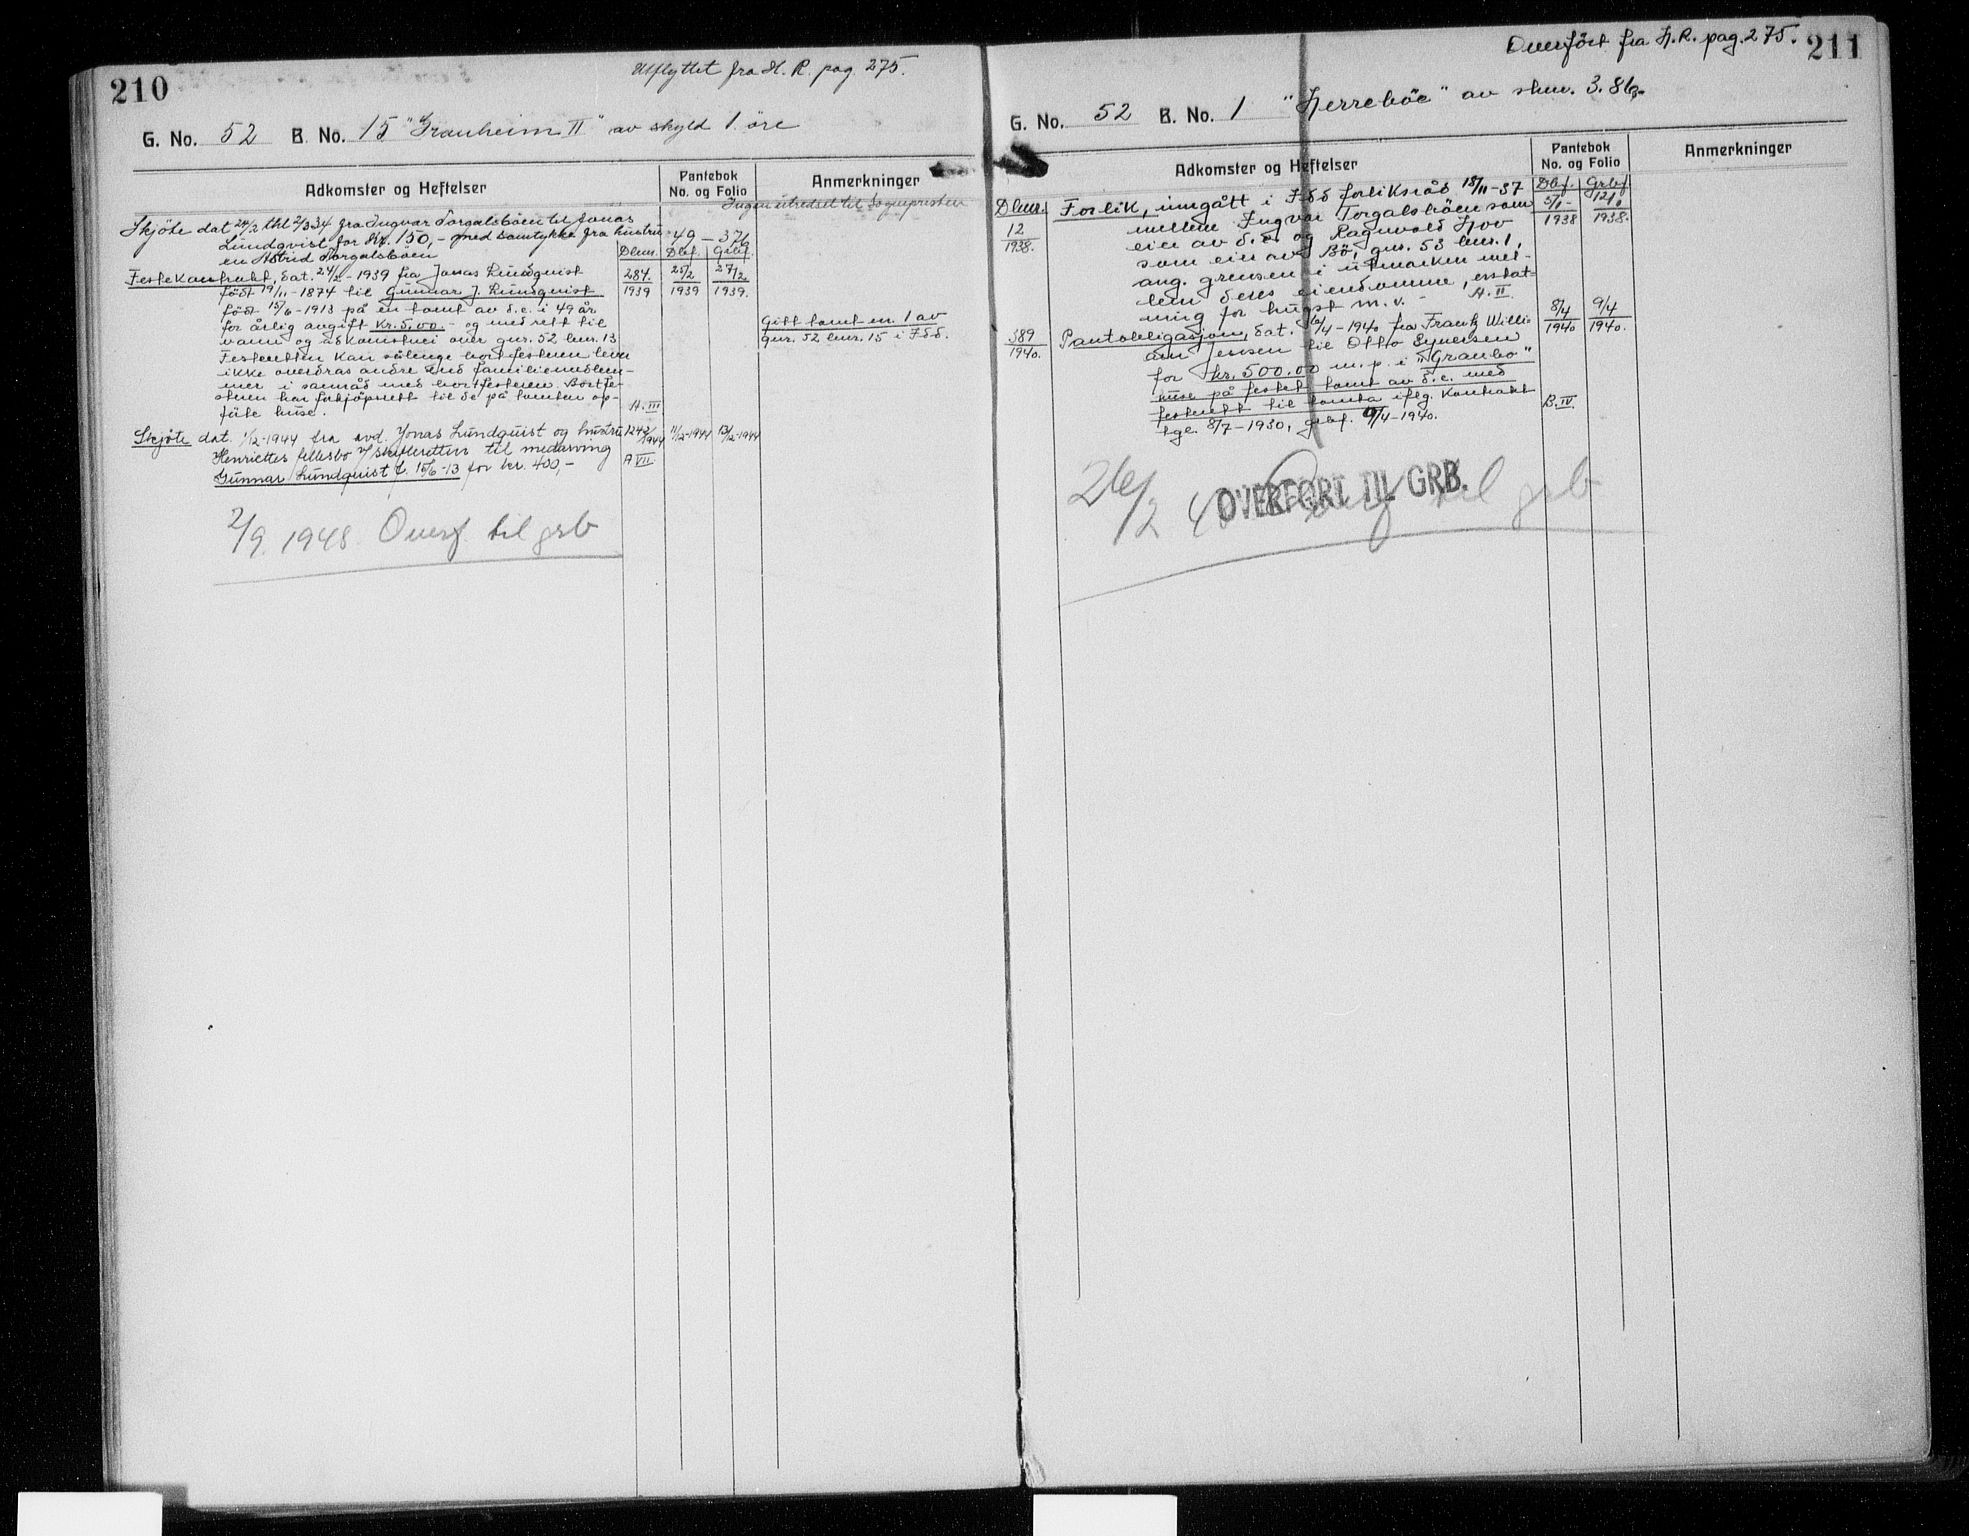 210
Utflyttet fra H. R. pag. 275.
G. No. 52 B. No. 15 "Granheim II" av skyld 1 øre
Adkomster og Heftelser
Pantebok
No. og Folio
Anmerkninger
Skjöte dat 24/2 thl 2/3 34 fra Ingvar Torgalsböen til Jonas
Lundqvist for Kr. 150,- med samtykke fra hustru- 49 - 37/
en Astrid Torgalsböen
Dbnr. Dbf. Grbf.
Festekontrakt, dat. 24/2 - 1939 fra Jonas Lundquist 284. 25/2 27/2
födt 19/11 - 1874 til Gunnar J. Lundquist 1939 1939 1939.
födt 15/6 - 1913 på en tomt av d.e. i 49 år
for årlig avgift kr. 5,00.- og med rett til
vann og adkomstvei over gnr. 52 bnr. 13
Festeretten kan sålenge bortfesteren lever
ikke overdras andre end familiemedlem-
mer i samråd med bortfesteren. Bortfe-
steren har forkjöpsrett til de på tomten op-
förte huse. A. III
Gitt tomt nr. 1 av
gnr. 52 bnr. 15 i Idd.
Skjöte dat. 1/12 - 1944 fra avd. Jonas Lundquist og hustru 1242/1944 11/12-1944 13/12-1944
Henriettes fellesbo v/ skifteretten til medarving
Gunnar Lundquist f. 15/6-13 for kr. 400,- A VII.
2/9. 1948 Overf til grb
211
Overfört fra H. R. pag. 275.
G. No. 52 B. No. 1 "Herreböe" av skm. 3.86
Adkomster og Heftelser
Pantebok
No. og Folio
Anmerkninger
Dbnr. Dbf. Grbf.
12 Forlik, inngått i Idd forliksråd 18/11 - 37 5/1- 12/1
1938. mellem Ingvar Torgalsböen som 1938 1938.
eier av d.e. og Ragnvald Hov
som eier av Bö, gnr. 53 bnr. 1,
ang. grensen i utmarken mel-
lem deres eiendomme, erstat-
ning for hugst m.v. - A. II.
389 Pantobligasjon, dat. 6/4 - 1940 fra Frantz Willi- 8/4 9/4
1940. am Jensen til Otto Syversen 1940 1940.
for kr. 500,00 m. p. i "Granbo"
huse på festet tomt av d.e. med
festerett til tomta iflg. kontrakt
tgl. 8/7 - 1930, grbf. 9/4 - 1940. B. IV.
26/2 4 Overf til grb
OVERFØRT TIL GRB.